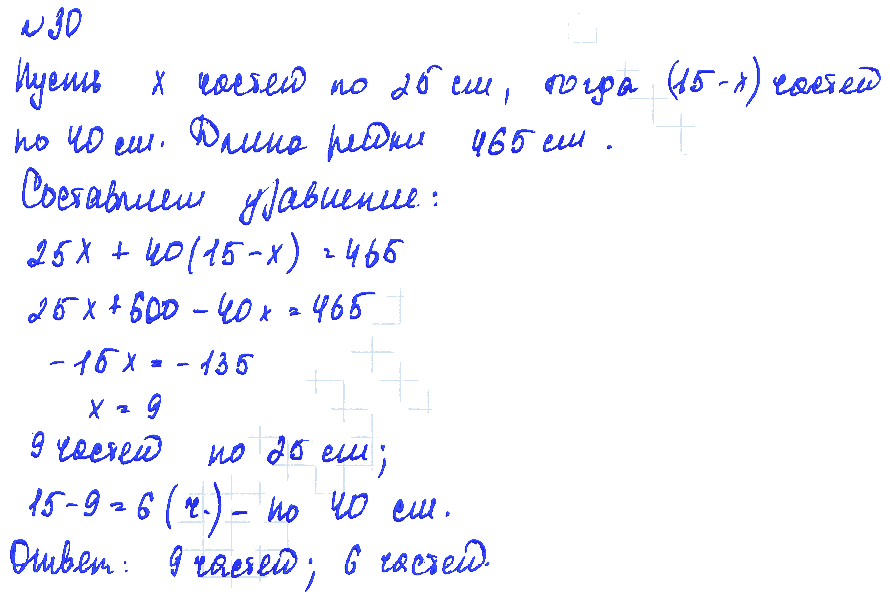 №30
Пусть x частей по 25 см, тогда (15-x) частей
по 40 см. Длина рейки 465 см.
Составляем уравнение:
25x + 40(15-x) = 465
25x + 600 - 40x = 465
-15x = -135
x = 9
9 частей по 25 см;
15-9=6 (ч.) - по 40 см.
Ответ: 9 частей; 6 частей.